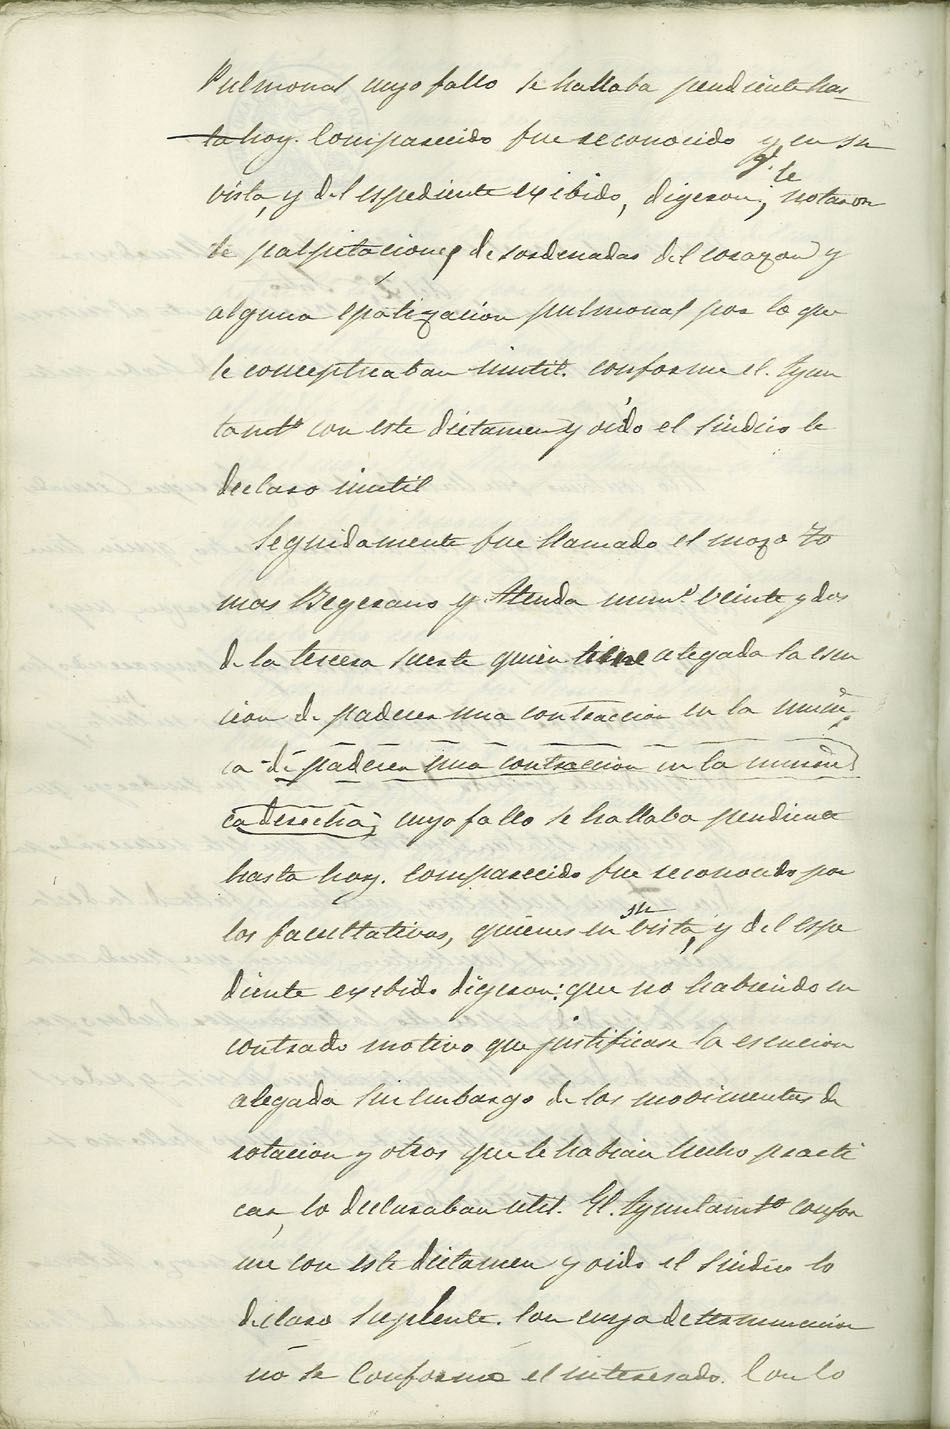 Pulmonal cuyo fallo se hallaba pendiente has
ta hoy. Comparecido fue reconocido y, en su
vista, y del espediente exibido, digeron; q. se notaron
le palpitaciones desordenadas del corazon y
alguna epatizacion pulmonal por lo que
le conceptuaban inutil. conforme el Ayun
tamto con este dictamen y oido el Sindico le
declaro inutil
Seguidamente fue llamado el mozo To
mas Begerano y Atenda num.o veinte y dos
de la tercera suerte quien tiene alegada la esen
cion de padecer una contraccion en la muñe
ca de padecer una contraccion en la muñe
ca derecha; cuyo fallo se hallaba pendiente
hasta hoy. Comparecido fue reconocido por
los facultativos, quienes en su vista, y del espe
diente exibido digeron: que no habiendo en
contrado motivo que justificase la escucion
alegada sin embargo de los movimientos de
rotacion y otros que le habian hecho practi
car, lo declaraban util. El Ayuntamto confor
me con este dictamen y oido el Sindico lo
declaro Suplente. Con cuya determinacion
no se conformó el interesado. Con lo